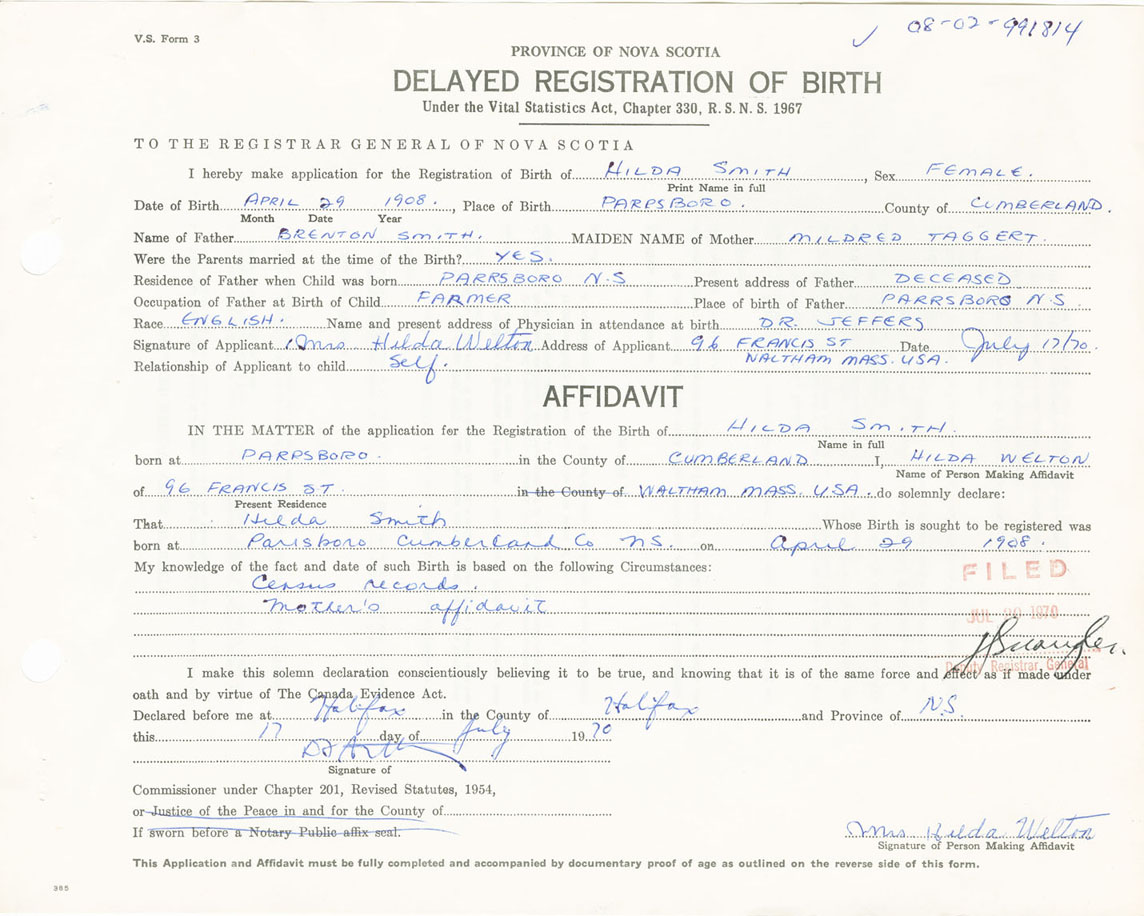 V.S. Form 3
08-02-991814
PROVINCE OF NOVA SCOTIA
DELAYED REGISTRATION OF BIRTH
Under the Vital Statistics Act, Chapter 330, R.S.N.S. 1967
TO THE REGISTRAR GENERAL OF NOVA SCOTIA
I hereby make application for the Registration of Birth of HILDA SMITH, Sex FEMALE.
Print Name in full
Date of Birth APRIL 29 1908., Place of Birth PARPSBORO. County of CUMBERLAND.
Month Date Year
Name of Father BRENTON SMITH. MAIDEN NAME of Mother MILDRED TAGGERT.
Were the Parents married at the time of the Birth? YES.
Residence of Father when Child was born PARRSBORO N.S Present address of Father DECEASED
Occupation of Father at Birth of Child FARMER Place of birth of Father PARRSBORO N.S.
Race ENGLISH. Name and present address of Physician in attendance at birth DR. JEFFERS
Signature of Applicant Mrs Hilda Welton Address of Applicant 96 FRANCIS ST Date July 17/70.
WALTHAM MASS. USA.
Relationship of Applicant to child Self.
AFFIDAVIT
IN THE MATTER of the application for the Registration of the Birth of HILDA SMITH.
Name in full
born at PARPSBORO. in the County of CUMBERLAND I, HILDA WELTON
Name of Person Making Affidavit
of 96 FRANCIS ST. in the County of WALTHAM MASS. USA. do solemnly declare:
Present Residence
That Hilda Smith Whose Birth is sought to be registered was
born at Parlsboro Cumberland Co NS. on April 29 1908.
My knowledge of the fact and date of such Birth is based on the following Circumstances:
Census records.
FILED
Mother's affidavit
JUL 1970
Deputy Registrar General
I make this solemn declaration conscientiously believing it to be true, and knowing that it is of the same force and effect as if made under
oath and by virtue of The Canada Evidence Act.
Declared before me at Halifax in the County of Halifax and Province of N.S.
this 17 day of July 1970
Signature of
Commissioner under Chapter 201, Revised Statutes, 1954,
or Justice of the Peace in and for the County of
If sworn before a Notary Public affix seal.
Mrs Hilda Welton
Signature of Person Making Affidavit
This Application and Affidavit must be fully completed and accompanied by documentary proof of age as outlined on the reverse side of this form.
385